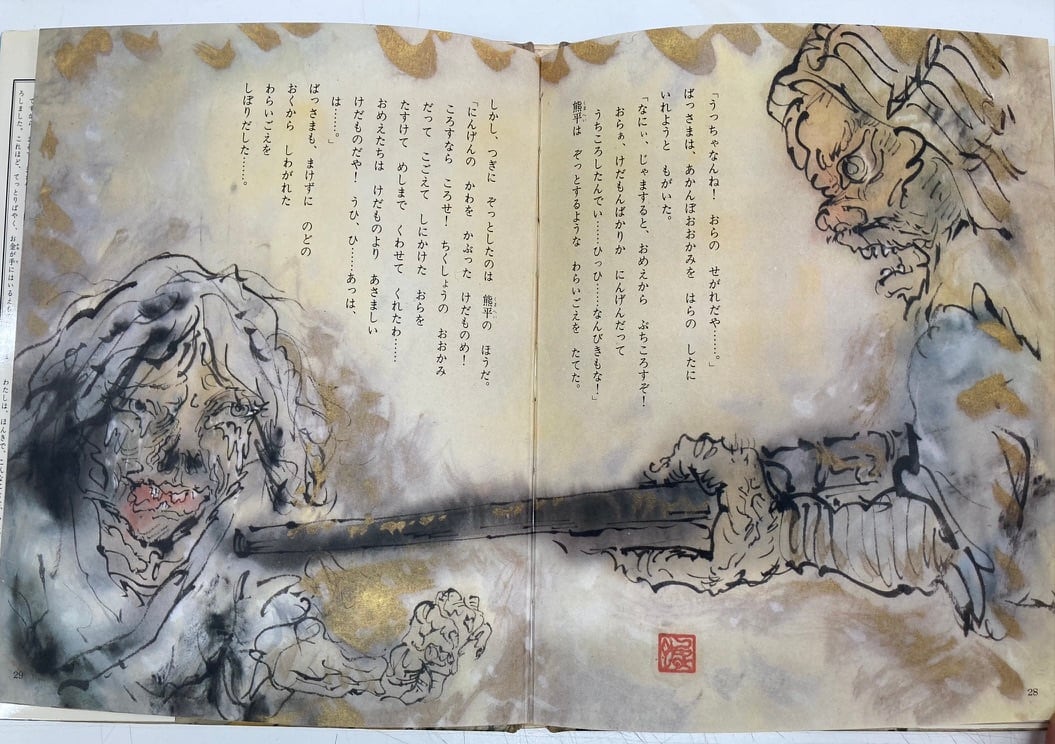 「うっちゃなんね！　おらの　せがれだや……。」
ばっさまは、あかんぼおおかみを　はらの　したに
いれようと　もがいた。
「なにぃ、じゃますると、おめえから　ぶちころすぞ！
おらぁ、けだもんばかりか　にんげんだって
うちころしたんでい……ひっひ……なんびきもな！」
熊平は　ぞっとするような　わらいごえを　たてた。
くまへい
28
しかし、つぎに　ぞっとしたのは　熊平の　ほうだ。
くまへい
「にんげんの　かわを　かぶった　けだものめ！
ころすなら　ころせ！　ちくしょうの　おおかみ
だって　こごえて　しにかけた　おらを
たすけて　めしまで　くわせて　くれたわ……
おめえたちは　けだものより　あさましい
けだものだや！　うひ、ひ……あっは、
は……。」
ばっさまも、まけずに　のどの
おくから　しわがれた
わらいごえを
しぼりだした……。
29
ろしました。これほど、てっとりばやく、お金が手にはいる
わたしは、ほんきで、こんな